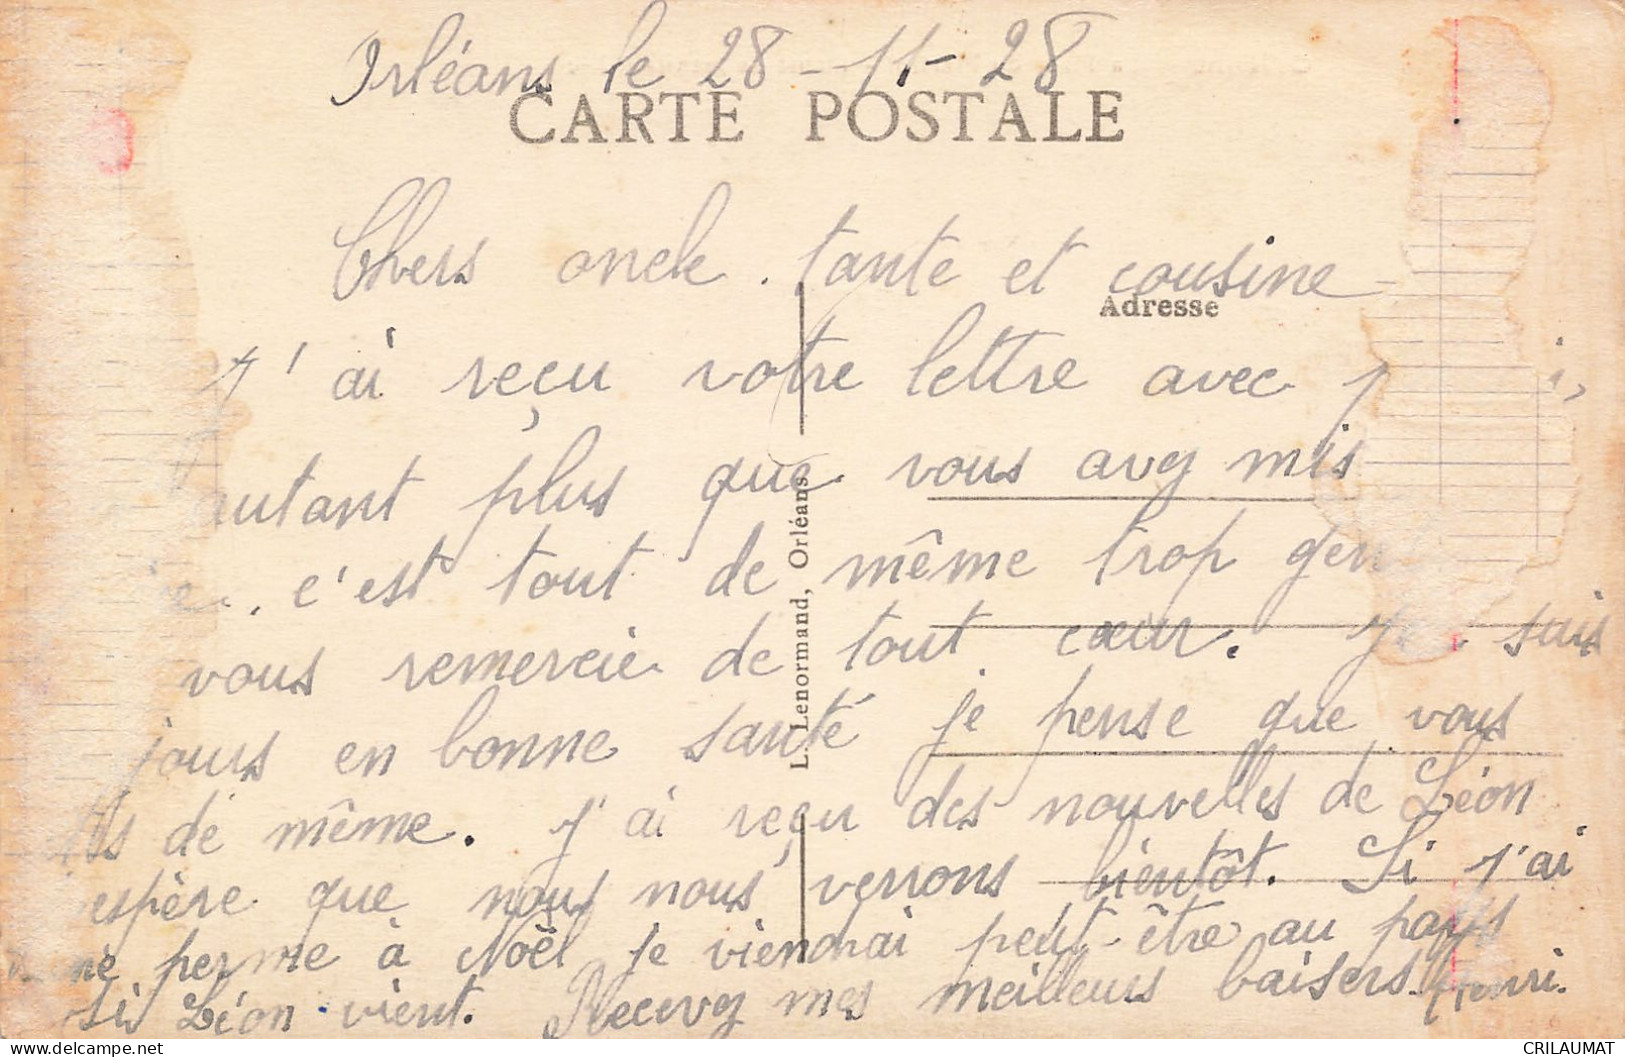 Orléans le 28-11-28
CARTE POSTALE
Chers oncle. tante et cousine
Adresse
J'ai reçu votre lettre avec
autant plus que vous avez mis
c'est tout de même trop
vous remercie de tout cœur. suis
jours en bonne santé je pense que vous
de même. J'ai reçu des nouvelles de Léon
espère que nous nous verrons bientôt. Si j'ai
perme à Noël je viendrai peut-être au pays
si Léon vient. Recevez mes meilleurs baisers. Henri.
L. Lenormand, Orléans
CRILAUMAT